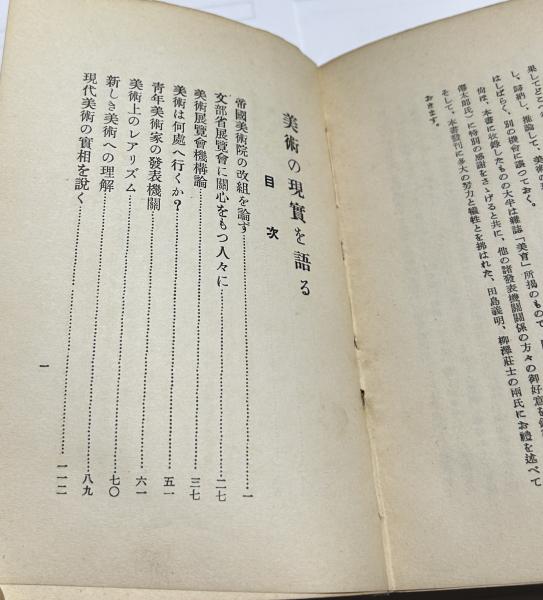 果してどこへ
し、歸納し、推論して、
はしばらく、別の機會に讓つておく。
尙ほ、本書に收錄したものの大半は雜誌「美育」所揭のもので、
傳太郎氏)に特別の感謝をさゝげると共に、他の諸發表機關關係の方々の御好意
そして、本書發刊に多大の努力と犧牲とを拂はれた、田島義明、柳澤莊士の兩氏にお禮を述べて
おきます。
美術の現實を語る
目次
帝國美術院の改組を論ず……一
文部省展覽會に關心をもつ人々に……二七
美術展覽會機構論……三七
美術は何處へ行くか?……五一
靑年美術家の發表機關……六一
美術上のレアリズム……七〇
新しき美術への理解……八九
現代美術の實相を說く……一一二
一